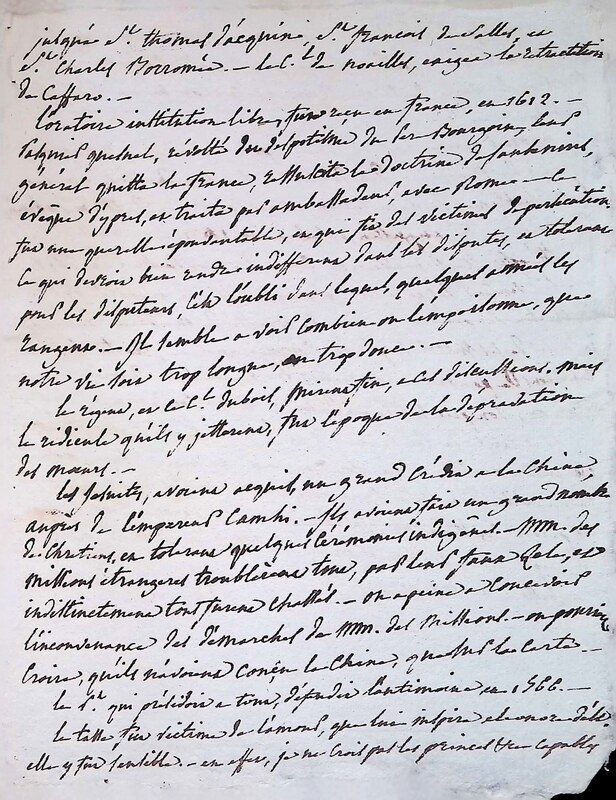 jusqu'a St. thomas d'acquin, St. francois de Salles, et
St. Charles Borromée. — le C.l de noailles, exigea la retractation
de Caffaro. —
l'oratoire institution libre, fut recu en france, en 1612. —
pasquier quesnel, révolté du despotisme du Ser Bourgoin, leur
général quitta la france, ressuscita la doctrine de jansenius,
évêque d'ypres, on traita par ambassadeurs, avec Rome — ce
fut une querelle épouvantable, et qui fit des victimes de persécution
ce qui devroit bien rendre indifferent dans les disputes, et tolerant
pour les disputeurs, c'est l'oubli dans lequel, quelques années les
rangent. — Il semble a voir combien on l'empoisonne, que
notre vie soit trop longue, ou trop douce. —
le régent, et le C.l dubois, mirent fin, a ces discussions. mais
le ridicule qu'ils y jetterent, fut l'époque de la dépradation
des moeurs. —
les Jesuites, avoient acquis, un grand Crédit a la Chine,
auprès de l'empereur Camhi. — Ils avoient fait un grand nombre
de Chretiens, en tolerant quelques cérémonies indigênes. — MM. des
missions étrangeres troublèrent tout, par leur faux zele, et
indistinctement tous furent chassés. — on a peine a concevoir
l'inconvenance des démarches de MM. des Missions. — on pourroit
croire, qu'ils n'avoient connu la Chine, que sur la Carte. —
le P.t qui présidoit a tout, défendit l'antimoine en 1566. —
le tasse fut victime de l'amour, que lui inspira eleonore d'est
elle y fut sensible. — en effet, je ne crois pas les princes etre capables